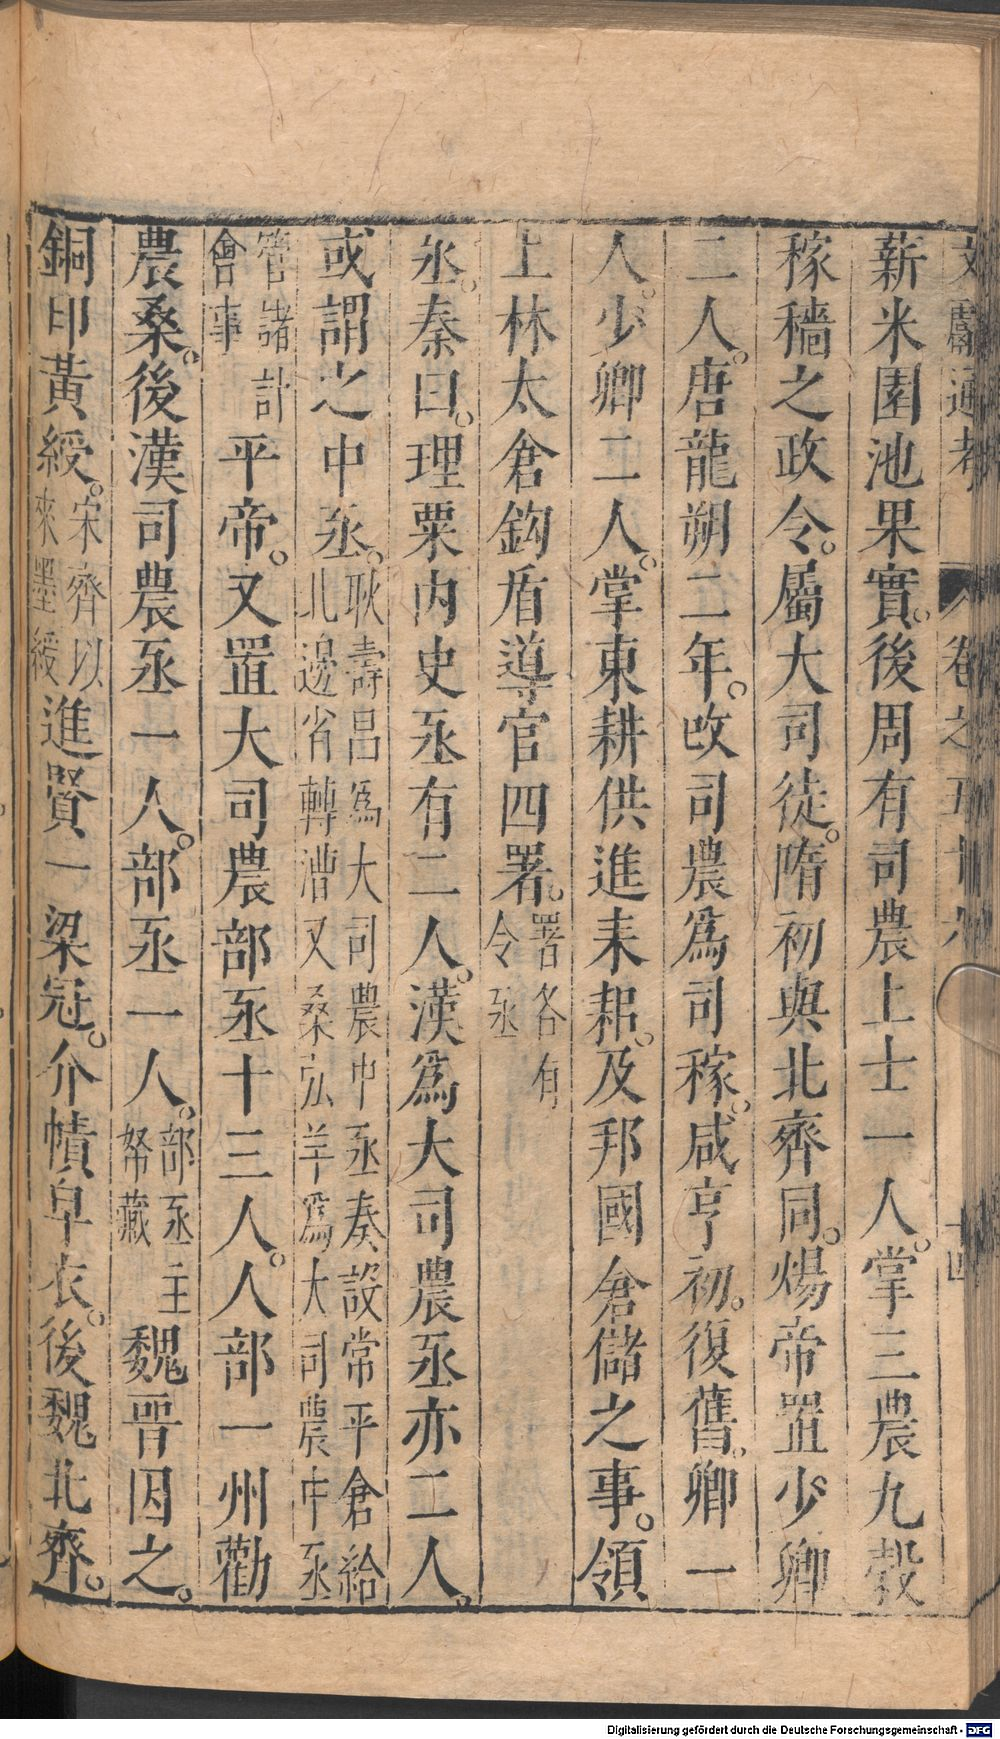 文獻通考 卷之五十六 十四
薪米園池果實。後周有司農上士一人。掌三農九穀
稼穡之政令。屬大司徒。隋初與北齊同。煬帝置少卿
二人。唐龍朔二年。改司農爲司稼。咸亨初。復舊。卿一
人。少卿二人。掌東耕供進耒耜。及邦國倉儲之事。領
上林太倉鈎盾導官四署。署各有令丞
丞。秦曰。理粟內史丞有二人。漢爲大司農丞亦二人。
或謂之中丞。耿壽昌爲大司農中丞奏設常平倉給北邊省轉漕又桑弘羊爲大司農中丞
管諸計會事平帝。又置大司農部丞十三人。人部一州勸
農桑。後漢司農丞一人。部丞一人。部丞主帑藏魏晉因之。
銅印黃綬。宋齊以來墨綬進賢一梁冠。介幘皁衣。後魏北齊。
Digitalisierung gefördert durch die Deutsche Forschungsgemeinschaft - DFG